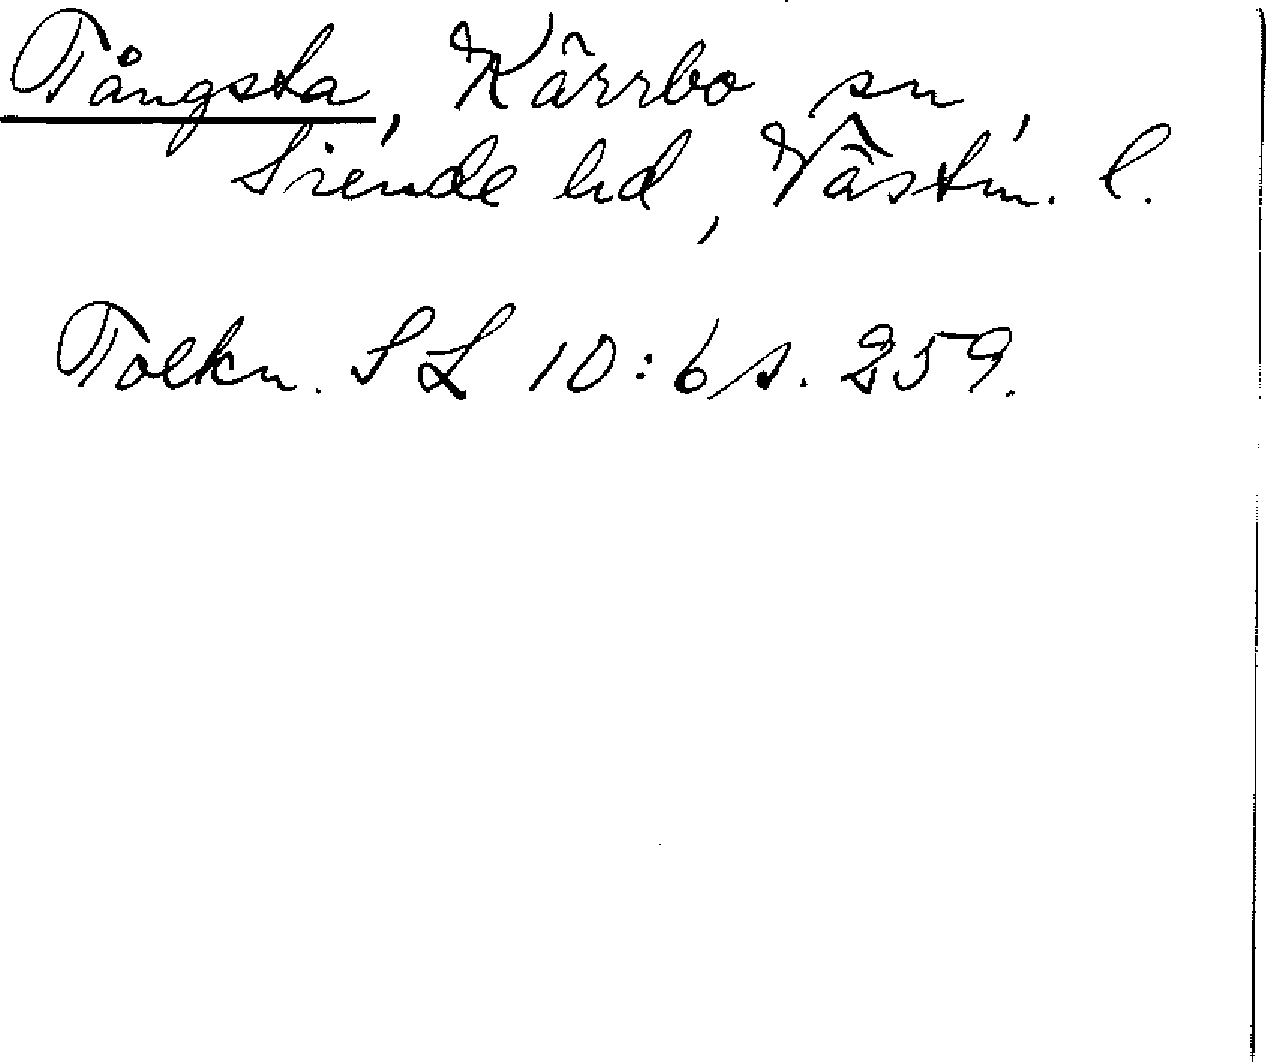 Tångsta, Kärrbo sn,
Siende hd, Västm. l.
Tolkn. SL 10:6 s. 259.